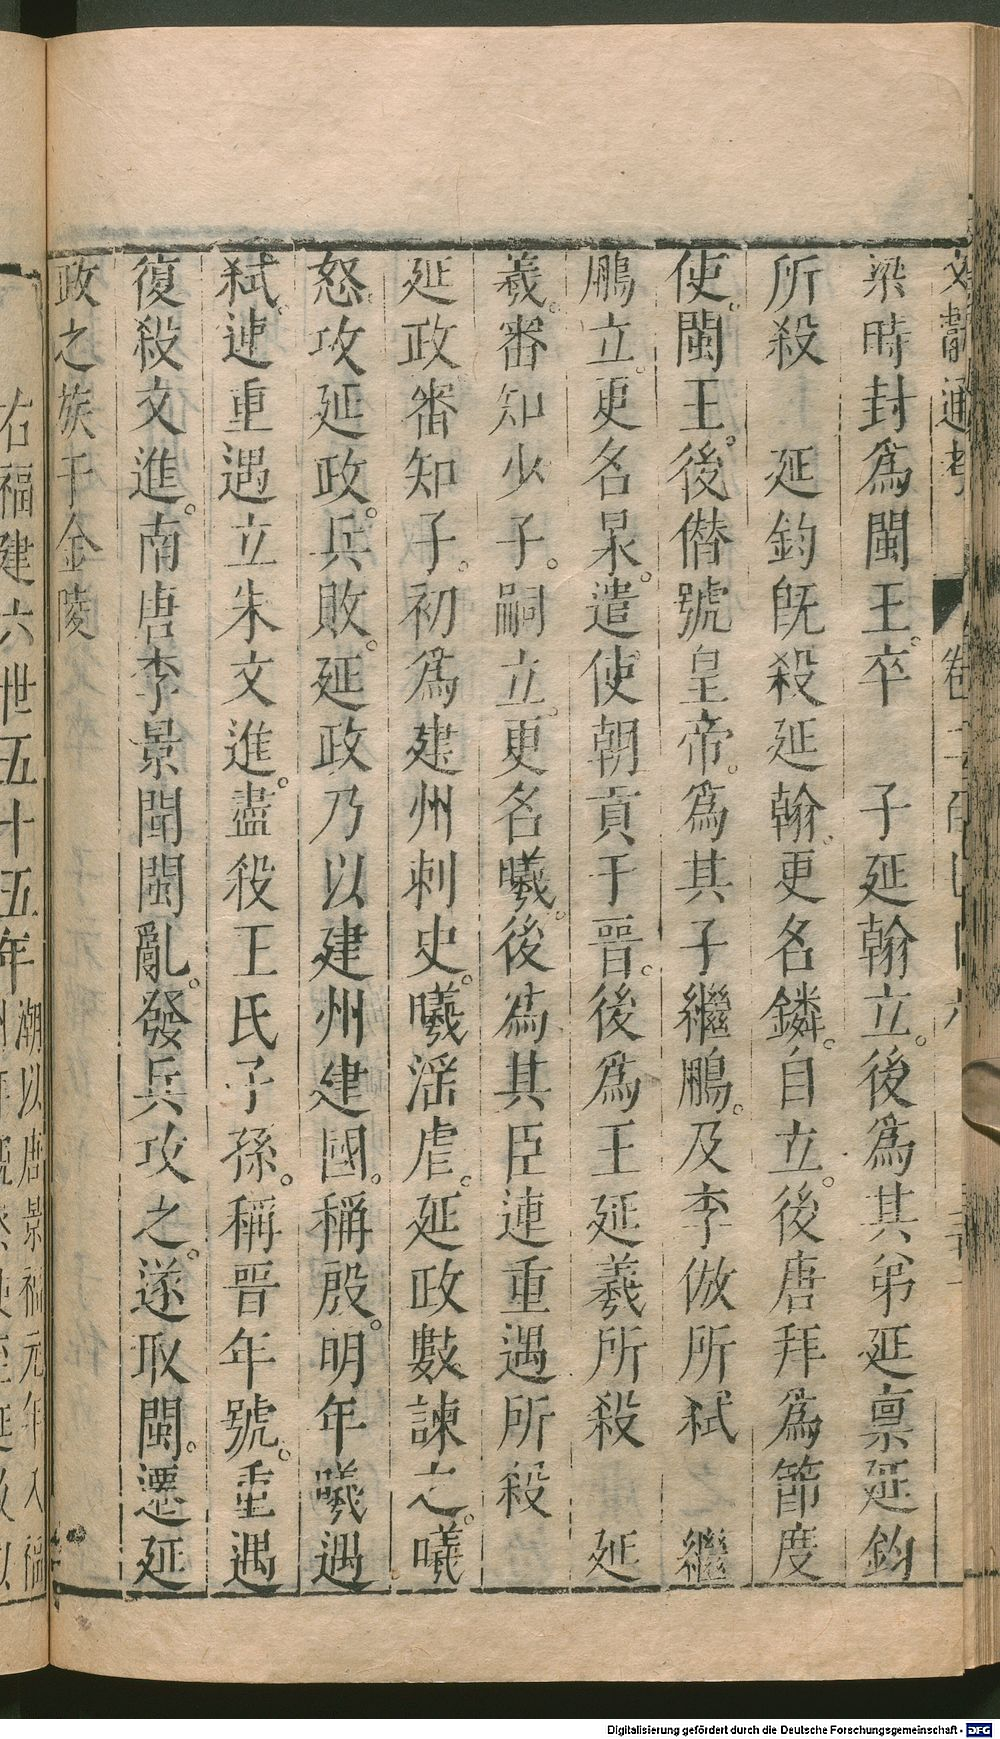 文獻通考 卷二百
梁時封爲閩王。卒 子延翰立。後爲其弟延禀延鈞
所殺 延鈞旣殺延翰。更名鏻。自立。後唐拜爲節度
使。閩王。後僣號皇帝。爲其子繼鵬。及李倣所弒 繼
鵬立。更名杲。遣使朝貢于晉。後爲王延羲所殺 延
羲。審知少子。嗣立。更名曦。後爲其臣連重遇所殺
延政。審知子。初爲建州刺史。曦滛虐。延政數諫之。曦
怒。攻延政。兵敗。延政乃以建州建國。稱殷。明年曦遇
弒。連重遇立朱文進。盡殺王氏子孫。稱晉年號。重遇
復殺文進。南唐李景聞閩亂。發兵攻之。遂取閩。遷延
政之族于金陵
右福建六世五十五年
潮以唐景福元年入福
Digitalisierung gefördert durch die Deutsche Forschungsgemeinschaft - DFG